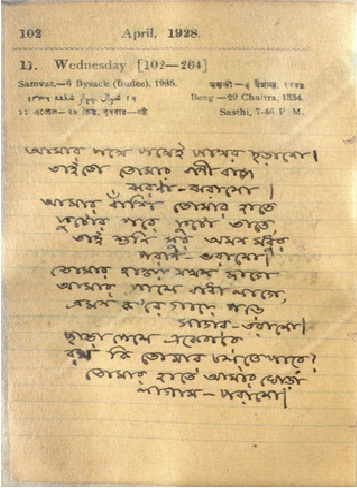 102 April, 1928.
11. Wednesday [102—264]
Samvat.—6 Bysack (Budee), 1985.
Beng.—29 Chaitra, 1334.
Sasthi, 7-46 P. M.
আমার পথে পথেই পাথর ছড়ানো।
তাই তো তোমার বাণী বাজে
ঝরনা-ঝরানো।
আমার বাঁশি তোমার হাতে
ফুটোর পরে ফুটো তাতে,
তাই শুনি সুর অমন মধুর
পরাণ-ভরানো।
তোমার হাওয়া যখন জাগে
আমার পালে বাধা লাগে,
এমন ক'রে গায়ে পড়ে
সাগর-তরানো।
ছাড়া পেলে একেবারে
রথ কি তোমার চলতে পারে?
তোমার হাতে আমার ঘোড়া
লাগাম-পরানো।